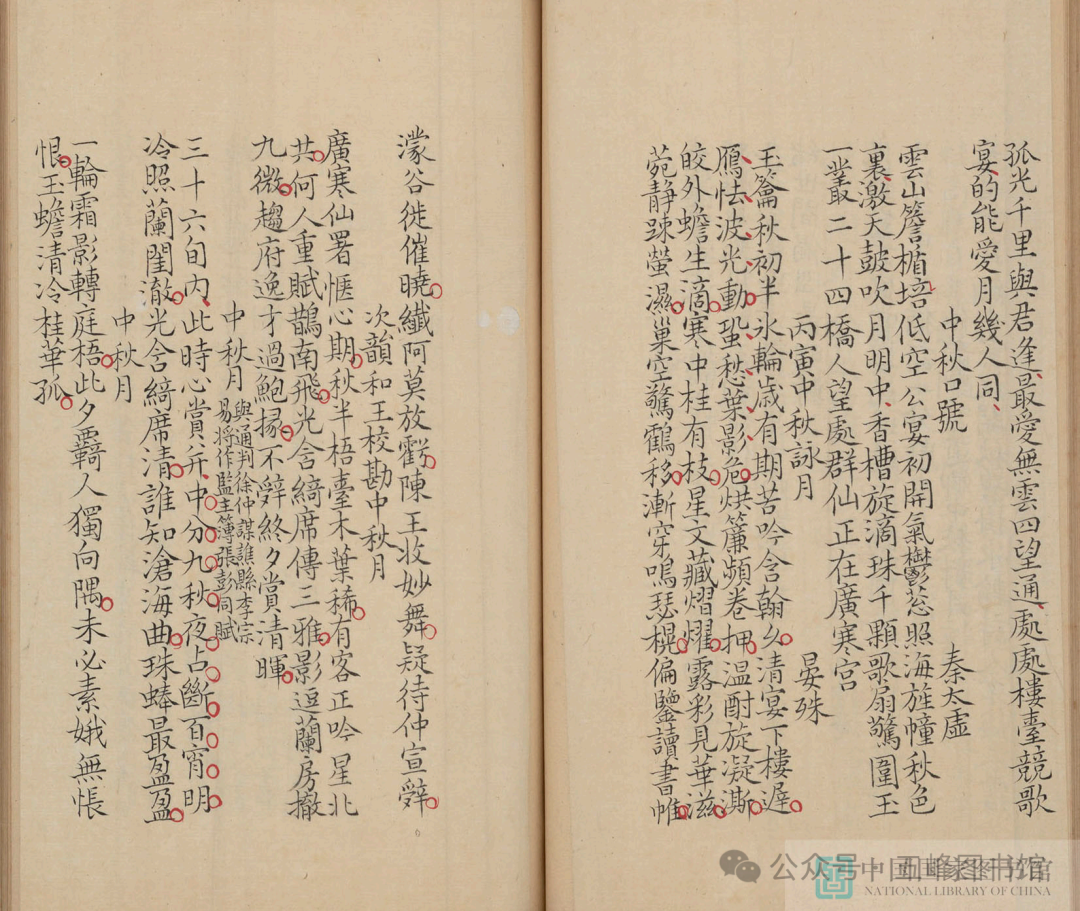 孤光千里與君逢最愛無雲四望通處處樓臺競歌
宴的能愛月幾人同
中秋口號
秦太虛
雲山簷楯培低空公宴初開氣鬱蔥照海旌幢秋色
裏激天鼓吹月明中香槽旋滴珠千顆歌扇驚圍玉
一叢二十四橋人望處群仙正在廣寒宮
丙寅中秋詠月
晏殊
玉籥秋初半氷輪歲有期苦吟含翰久清宴下樓遲
鴈怯波光動蛩愁葉影危烘簾頻卷押溫酎旋凝澌
皎外蟾生滴寒中桂有枝星文藏熠燿露彩見華滋
菀静踈螢濕巢空驚鶴移漸穿鳴瑟榥偏鑒讀書帷
濛谷徙催曉纖阿莫放虧陳王收妙舞疑待仲宣辤
次韻和王校勘中秋月
廣寒仙署愜心期秋半梧臺木葉稀有客正吟星北
共何人重賦鵲南飛光含綺席傳三雅影逗蘭房撤
九微趨府逸才過鮑掾不辤終夕賞清暉
中秋月
與通判徐仲謀譙縣李宗
易將作監主簿張彭同賦
三十六旬内此時心賞并中分九秋夜占斷百宵明
冷照蘭閨澈光含綺席清誰知滄海曲珠蜯最盈盈
中秋月
一輪霜影轉庭梧此夕羇人獨向隅未必素娥無悵
恨玉蟾清冷桂華孤
公众号·五峰图书馆
中国国家图书馆
NATIONAL LIBRARY OF CHINA